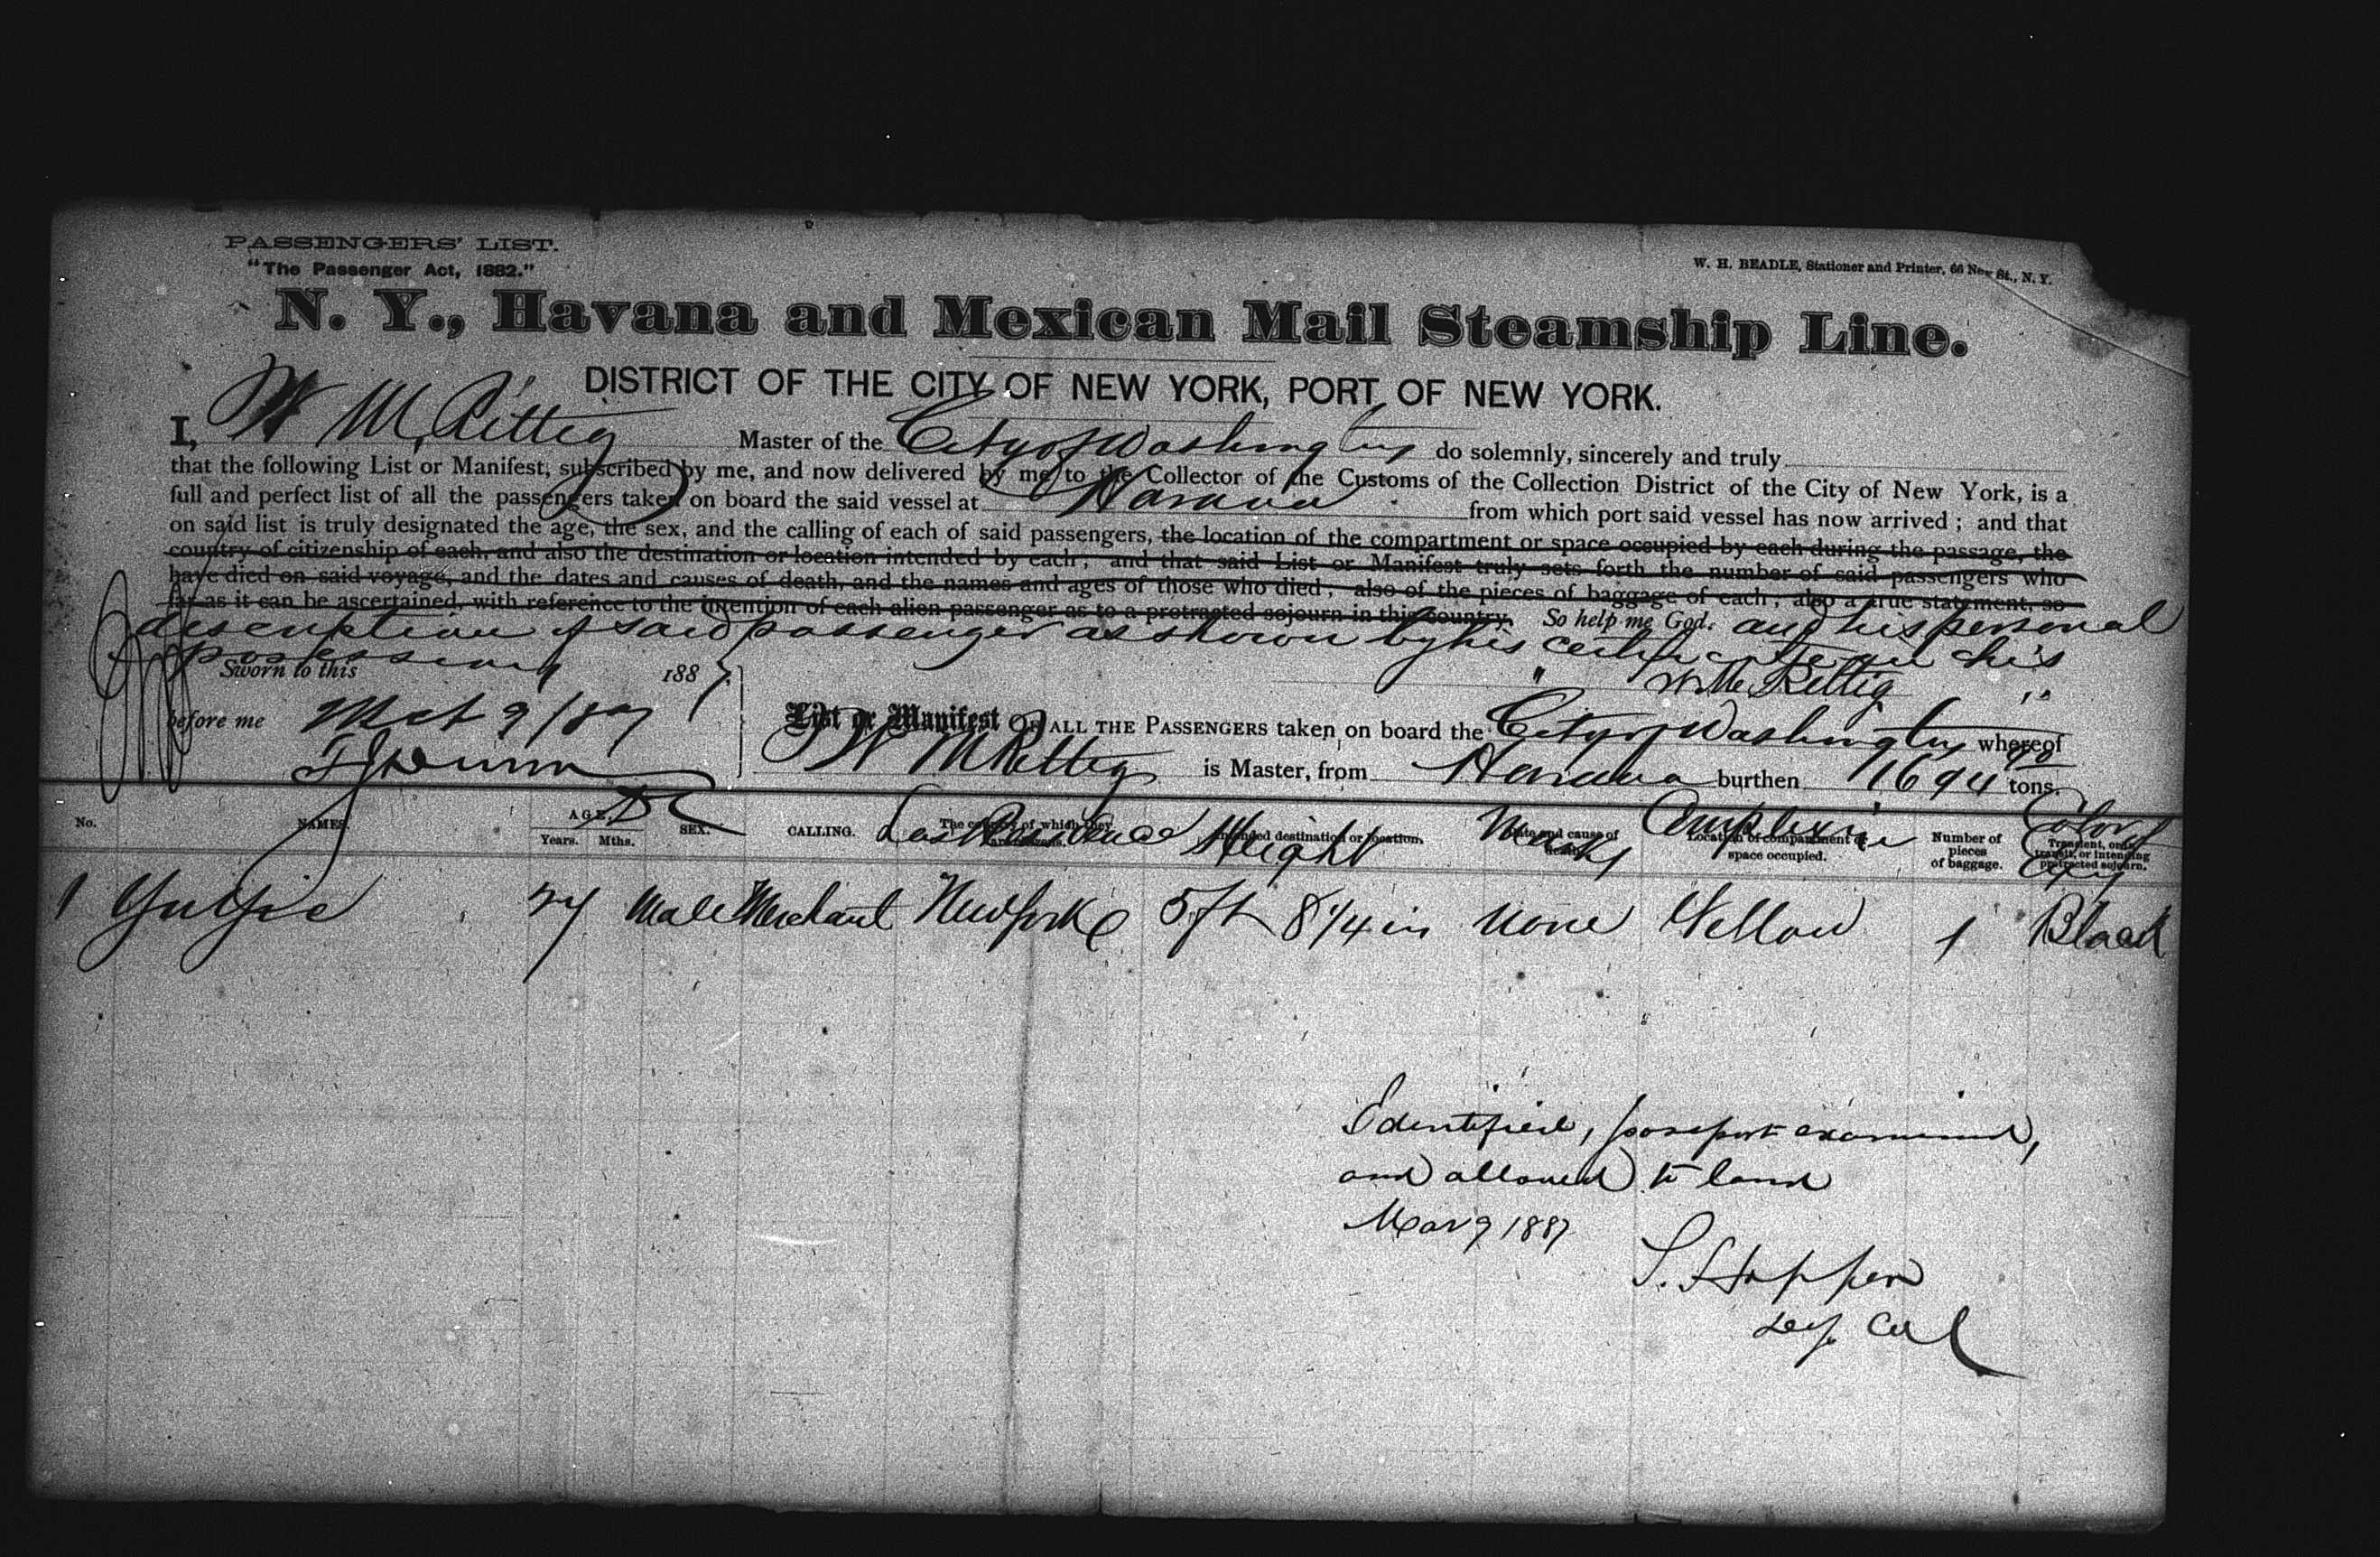 PASSENGERS' LIST.
"The Passenger Act, 1882."
W. H. BEADLE, Stationer and Printer, 66 New St., N. Y.
N. Y., Havana and Mexican Mail Steamship Line.
DISTRICT OF THE CITY OF NEW YORK, PORT OF NEW YORK.
I, W M Rettig Master of the City of Washington do solemnly, sincerely and truly
that the following List or Manifest, subscribed by me, and now delivered by me to the Collector of the Customs of the Collection District of the City of New York, is a
full and perfect list of all the passengers taken on board the said vessel at Havana from which port said vessel has now arrived ; and that
on said list is truly designated the age, the sex, and the calling of each of said passengers, the location of the compartment or space occupied by each during the passage, the
country of citizenship of each, and also the destination or location intended by each ; and that said List or Manifest truly sets forth the number of said passengers who
have died on said voyage, and the dates and causes of death, and the names and ages of those who died ; also of the pieces of baggage of each ; also a true statement, so
far as it can be ascertained, with reference to the intention of each alien passenger as to a protracted sojourn in this country. So help me God. and his personal
description of said passenger as shown by his certificate in his
possession
Sworn to this 1887
W M Rettig
before me Mch 9/87
List or Manifest OF ALL THE PASSENGERS taken on board the City of Washington whereof
W M Rettig is Master, from Havana burthen 1694 tons.
No. NAMES. AGE. Years. Mths. SEX. CALLING. Last Residence Height Marks Complexion Number of pieces of baggage. Color of Eyes
1 27 Male Merchant New York 5 ft 8 1/4 in None Yellow 1 Black
Identified, passport examined,
and allowed to land
Mar 9 1887
S. Hoppen
Dep. Col